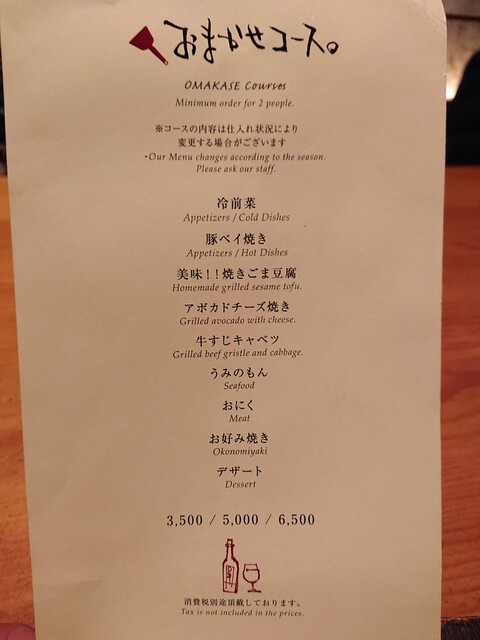 おまかせコース。
OMAKASE Courses
Minimum order for 2 people.
※コースの内容は仕入れ状況により
変更する場合がございます
・Our Menu changes according to the season.
Please ask our staff.
冷前菜
Appetizers / Cold Dishes
豚ペイ焼き
Appetizers / Hot Dishes
美味!!焼きごま豆腐
Homemade grilled sesame tofu.
アボカドチーズ焼き
Grilled avocado with cheese.
牛すじキャベツ
Grilled beef gristle and cabbage.
うみのもん
Seafood
おにく
Meat
お好み焼き
Okonomiyaki
デザート
Dessert
3,500 / 5,000 / 6,500
消費税別途頂戴しております。
Tax is not included in the prices.